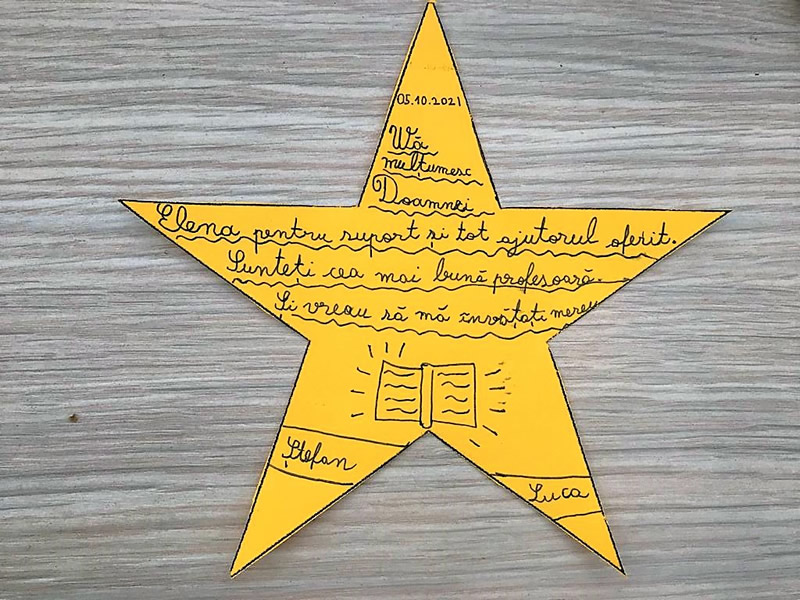 05.10.2021
Vă
mulțumesc
Doamnei
Elena pentru suport și tot ajutorul oferit.
Sunteți cea mai bună profesoară.
Și vreau să mă învățați mereu
Ștefan
Luca